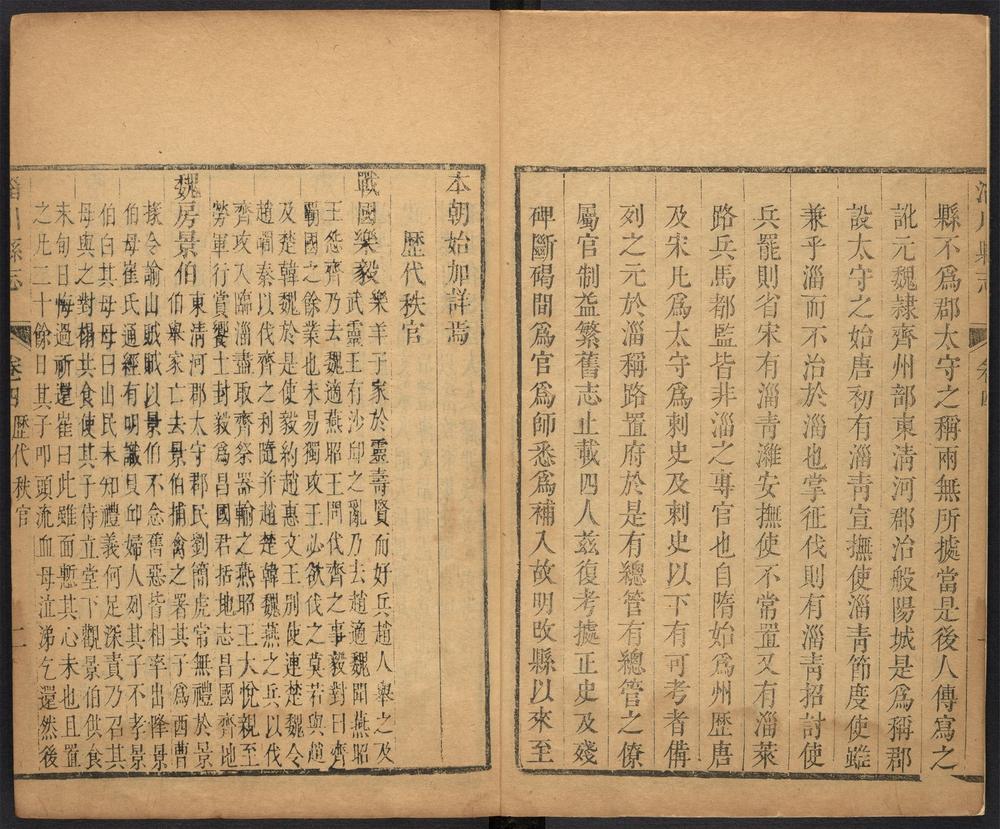 縣不爲郡太守之稱兩無所據當是後人傳寫之
訛元魏隷齊州部東淸河郡治般陽城是爲稱郡
設太守之始唐初有淄靑宣撫使淄靑節度使雖
兼乎淄而不治於淄也掌征伐則有淄靑招討使
兵罷則省宋有淄靑濰安撫使不常置又有淄萊
路兵馬都監皆非淄之專官也自隋始爲州歷唐
及宋凡爲太守爲刺史及刺史以下有可考者備
列之元於淄稱路置府於是有總管有總管之僚
屬官制益繁舊志止載四人茲復考據正史及殘
碑斷碣間爲官爲師悉爲補入故明改縣以來至
本朝始加詳焉
歷代秩官
戰國樂毅
樂羊子家於靈壽賢而好兵趙人舉之及
武靈王有沙邱之亂乃去趙適魏聞燕昭
王怨齊乃去魏適燕昭王問伐齊之事毅對曰齊
霸國之餘業也未易獨攻王必欲伐之莫若與趙
及楚韓魏於是使毅約趙惠文王別使連楚魏令
趙嚪秦以伐齊之利隨并趙楚韓魏燕之兵以伐
齊攻入臨淄盡取齊祭器輸之燕昭王大悅親至
勞軍行賞饗士封毅爲昌國君括地志昌國齊地
魏房景伯
東淸河郡太守郡民劉簡虎常無禮於景
伯舉家亡去景伯捕禽之署其子爲西曹
掾令諭山賊賊以景伯不念舊惡皆相率出降景
伯母崔氏通經有明識貝邱婦人列其子不孝景
伯白其母母曰山民未知禮義何足深責乃召其
母與之對榻共食使其子侍立堂下觀景伯供食
未旬日悔過祈還崔曰此雖面慙其心未也且置
之凡二十餘日其子叩頭流血母泣涕乞還然後
縣志
卷四
歷代秩官
二